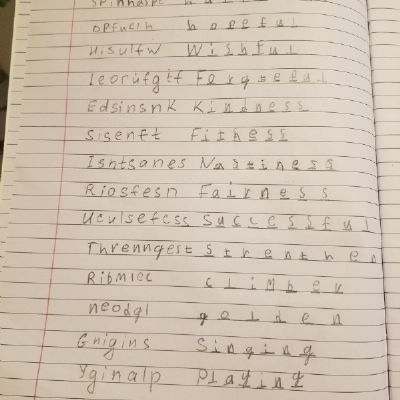 Opfuelh hopeful
Hisulfw Wishful
leorufgtf Forgteful
Edsinsnk Kindness
Sisenft Fitness
Isntsanes Nastiness
Riosfesn Fairness
Ucvlsefcss Successful
Threnngest Strenthen
Ribmlec climber
neodgl golden
Gnigins Singing
Yginalp Playing